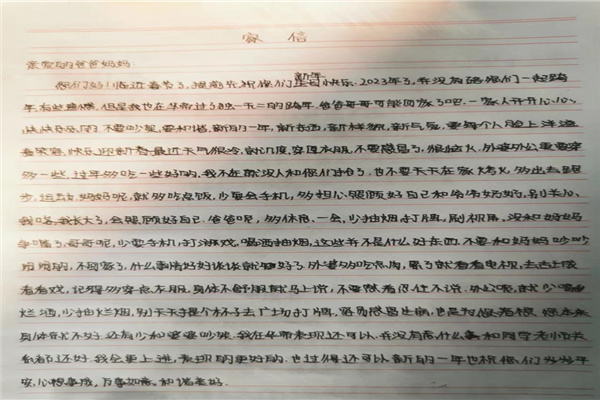 家信
亲爱的爸爸妈妈:
新年
你们好!临近春节了,提前先祝你们生日快乐.2023年了,我没有陪你们一起跨
年,有些遗憾,但是我也在华南过了独一无二的跨年.爸爸哥哥可能回家了吧.一家人开开心心,
快快乐乐的,不要吵架,要和谐,新的一年,新生活,新样貌,新气象,要每个人脸上洋溢
着笑容,快乐迎新春.最近天气很冷,就几度,穿厚衣服,不要感冒了.很怕火,外婆外公重要穿
多一些,过年多吃一些好的,我不在就没人和你们抢了.也不要天天在家烤火,多出去跑
步,运动.妈妈呢,就多吃点饭,少玩会手机,多担心照顾好自己和爷爷奶奶,别关心
我咯,我长大了,会照顾好自己.爸爸呢,多休息一会,少抽烟打牌,刷视屏,没和妈妈
争嘴了.哥哥呢,少耍手机,打游戏,喝酒抽烟,这些并不是什么好东西.不要和妈妈吵吵
闹闹的,不回家了,什么事情好好谈谈就好了.外婆多吃点肉,累了就看看电视,去古上坡
看看戏,记得多穿点衣服,身体不舒服就马上说,不要熬着很住不说.外公呢,就少喝
烂酒,少抽烂烟,别天天提个杯子去广场打牌,容易感冒生病,也是够操着你.你本来
身体就不好.还有少和婆婆吵架.我在华南表现还可以,我没有高什么事和同学老师关
系都还好.我会更上进,表现的更好的.也过得还可以.新的一年也祝你们岁岁平
安,心想事成,万事如意,和谐美好.